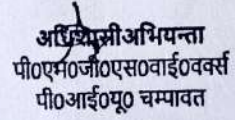 अधिशासी अभियन्ता
पी०एम०जी०एस०वाई०वर्क्स
पी०आई०यू० चम्पावत